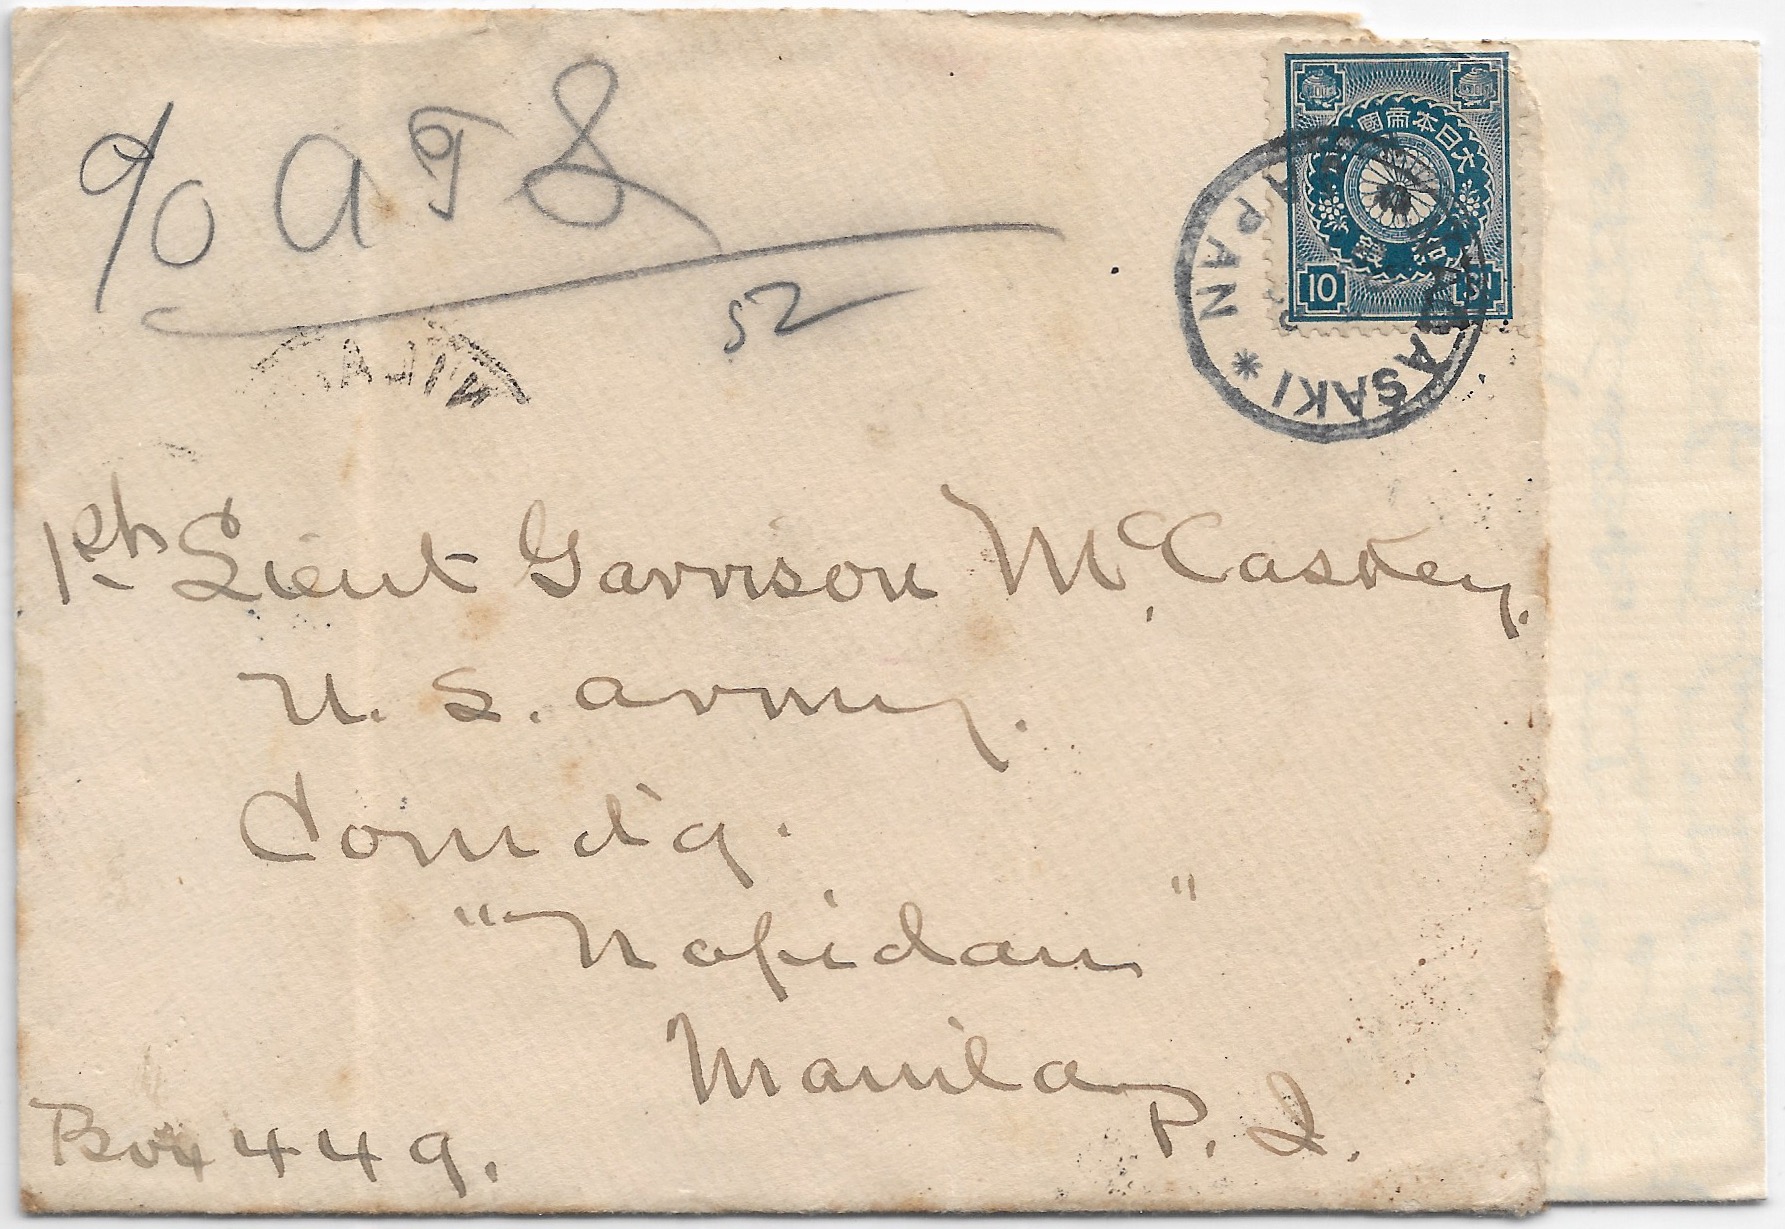 c/o ATS
52
大日本帝國
10
NAGASAKI * JAPAN
MANILA
1st Lieut Garrison McCaskey.
U. S. Army.
Comd'g.
"Napidan"
Manila
P. I.
Box 449.